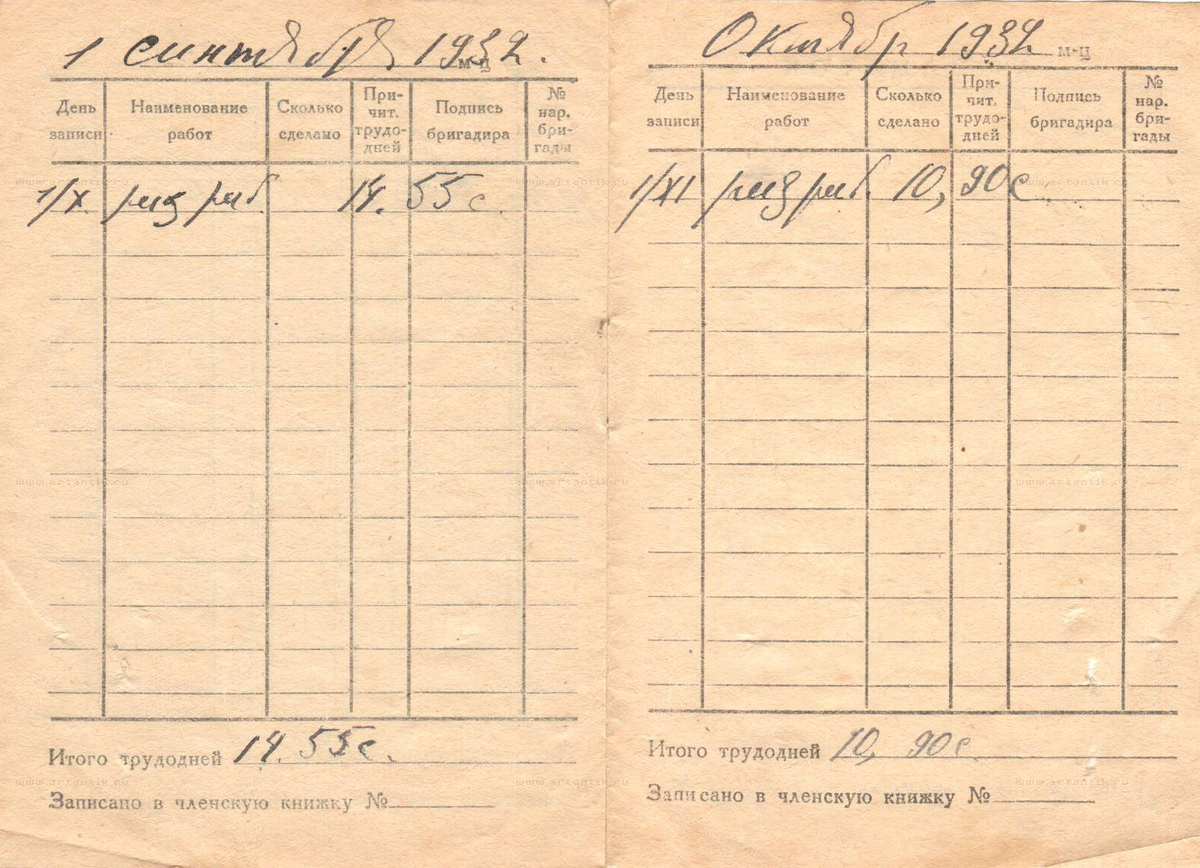 1 сентября 1932.
м-ц
День записи
Наименование работ
Сколько сделано
При-
чит.
трудо-
дней
Подпись бригадира
№
нар.
бри-
гады
1/X. раз раб. 14. 55 с.
Итого трудодней 14. 55 с.
Записано в членскую книжку №
Октябр 1932 м-ц
День записи
Наименование работ
Сколько сделано
При-
чит.
трудо-
дней
Подпись бригадира
№
нар.
бри-
гады
1/XI раз раб. 10, 90 с.
Итого трудодней 10, 90 с
Записано в членскую книжку №
www.artantik.ru